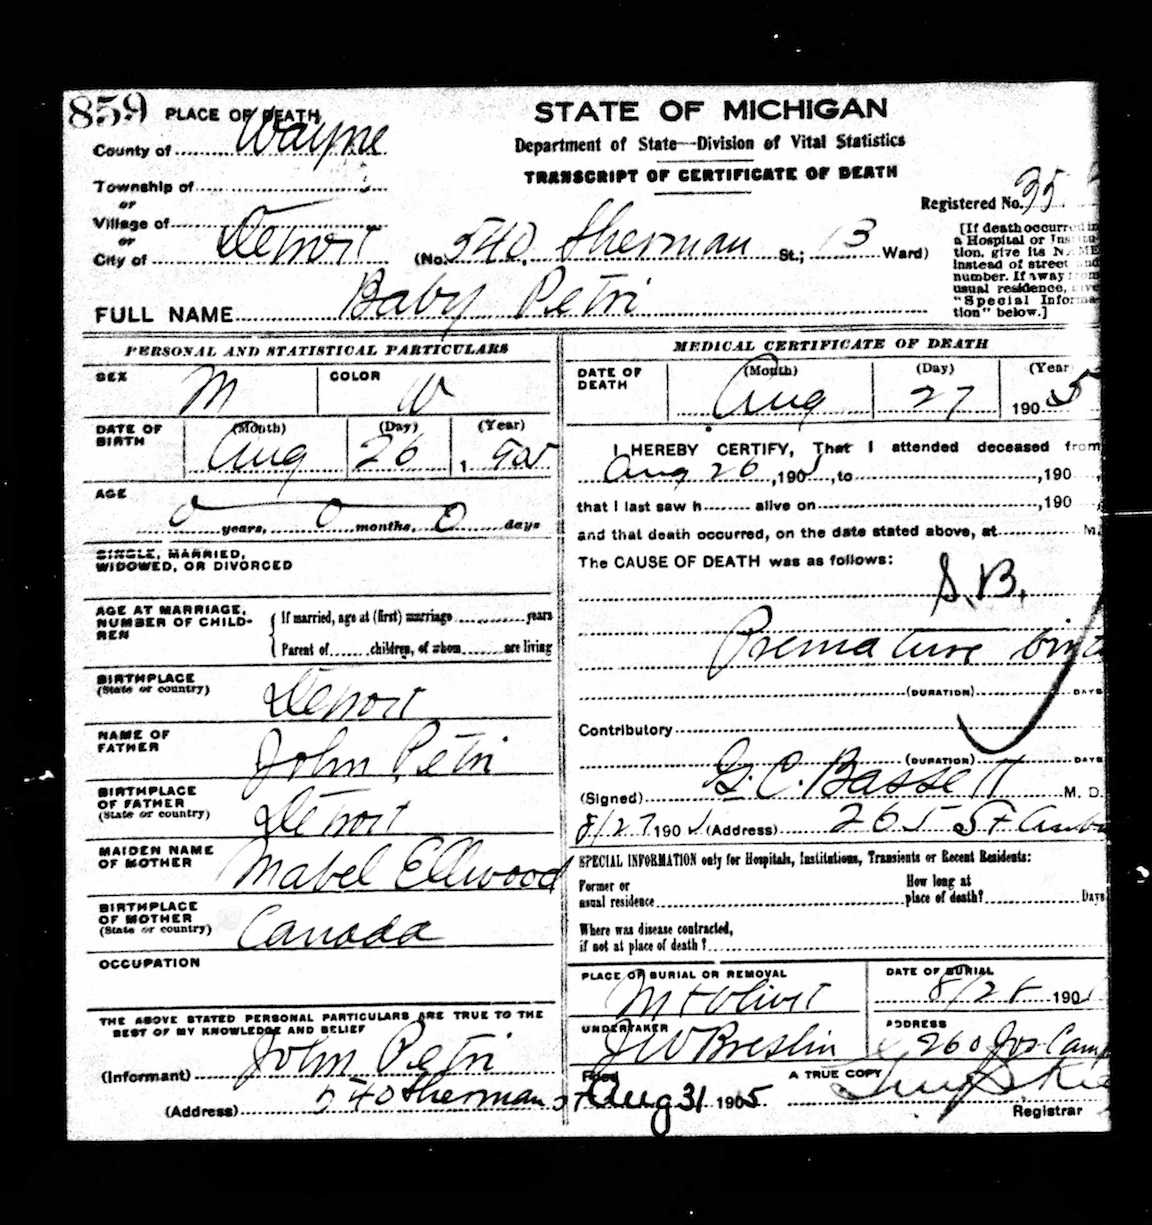 859 PLACE OF DEATH
STATE OF MICHIGAN
Department of State—Division of Vital Statistics
TRANSCRIPT OF CERTIFICATE OF DEATH
County of Wayne
Township of
or
Village of
or
City of Detroit (No. 540 Sherman St.; 13 Ward)
Registered No. 35
[If death occurred in
a Hospital or Institu-
tion, give its NAME
instead of street and
number. If away from
usual residence, give
"Special Informa-
tion" below.]
FULL NAME Baby Petri
PERSONAL AND STATISTICAL PARTICULARS
SEX M COLOR W
DATE OF BIRTH (Month) Aug (Day) 26 (Year) , 905
AGE
0 years, 0 months, 0 days
SINGLE, MARRIED,
WIDOWED, OR DIVORCED
AGE AT MARRIAGE,
NUMBER OF CHILD-
REN
If married, age at (first) marriage years
Parent of children, of whom are living
BIRTHPLACE
(State or country) Detroit
NAME OF
FATHER John Petri
BIRTHPLACE
OF FATHER
(State or country) Detroit
MAIDEN NAME
OF MOTHER Mabel Ellwood
BIRTHPLACE
OF MOTHER
(State or country) Canada
OCCUPATION
THE ABOVE STATED PERSONAL PARTICULARS ARE TRUE TO THE
BEST OF MY KNOWLEDGE AND BELIEF
(Informant) John Petri
(Address) 540 Sherman St
MEDICAL CERTIFICATE OF DEATH
DATE OF DEATH (Month) Aug (Day) 27 (Year) 1905
I HEREBY CERTIFY, That I attended deceased from
Aug 26, 1905, to , 190 ,
that I last saw h alive on , 190 ,
and that death occurred, on the date stated above, at M.
The CAUSE OF DEATH was as follows:
S.B.
Premature birth
(DURATION) DAYS
Contributory
(DURATION) DAYS
(Signed) G. C. Bassett M. D.
8/27 1905 (Address) 265 St
SPECIAL INFORMATION only for Hospitals, Institutions, Transients or Recent Residents:
Former or
usual residence
How long at
place of death? Days
Where was disease contracted,
if not at place of death?
PLACE OF BURIAL OR REMOVAL
Mt Olivet
DATE OF BURIAL
8/28 190
UNDERTAKER
J W Breslin
ADDRESS
260 Jos Camp
Filed Aug 31 1905
A TRUE COPY
Registrar